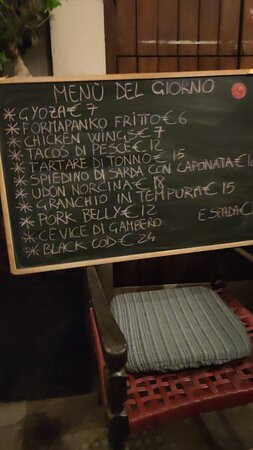 MENÙ DEL GIORNO
* GYOZA € 7
* FORMAPANKO FRITTO € 6
* CHICKEN WINGS € 7
* TACOS DI PESCE € 12
* TARTARE DI TONNO € 15
* SPIEDINO DI SARDA CON CAPONATA €
* UDON NORCINA € 18
* GRANCHIO IN TEMPURA € 15
* PORK BELLY € 12 ESPADA €
* CEVICE DI GAMBERO
* BLACK COD € 24